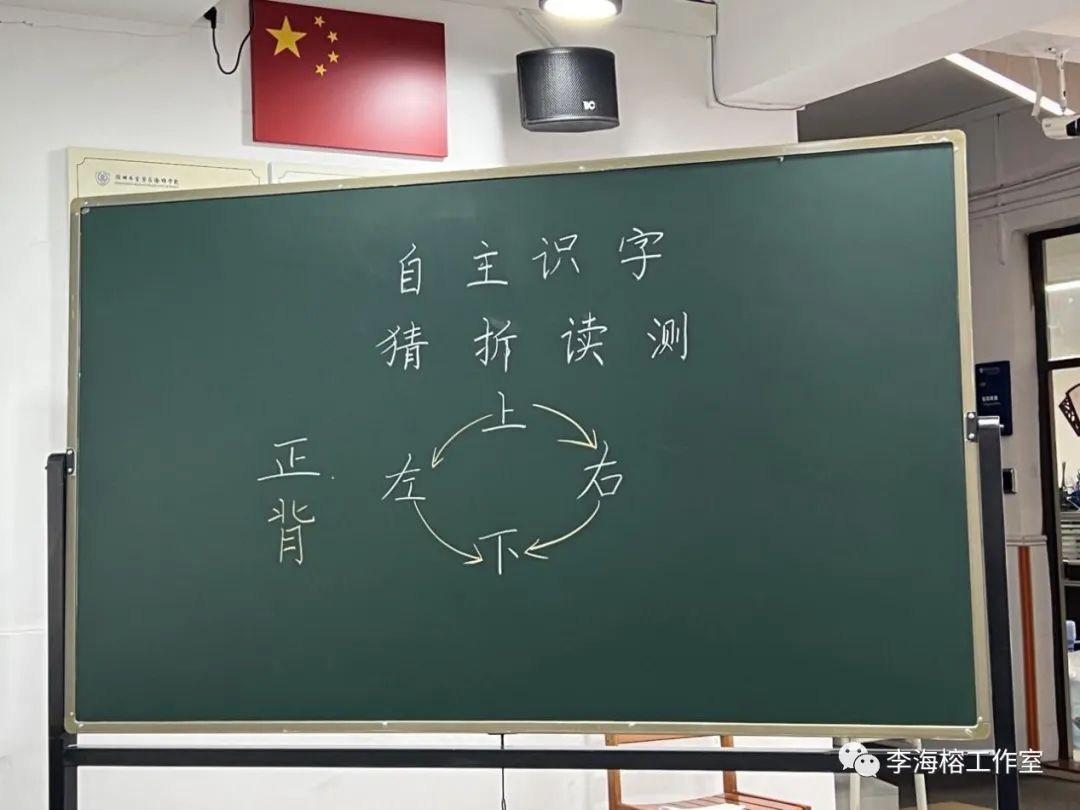 自主识字
猜折读测
上
正
左
右
背
下
李海榕工作室